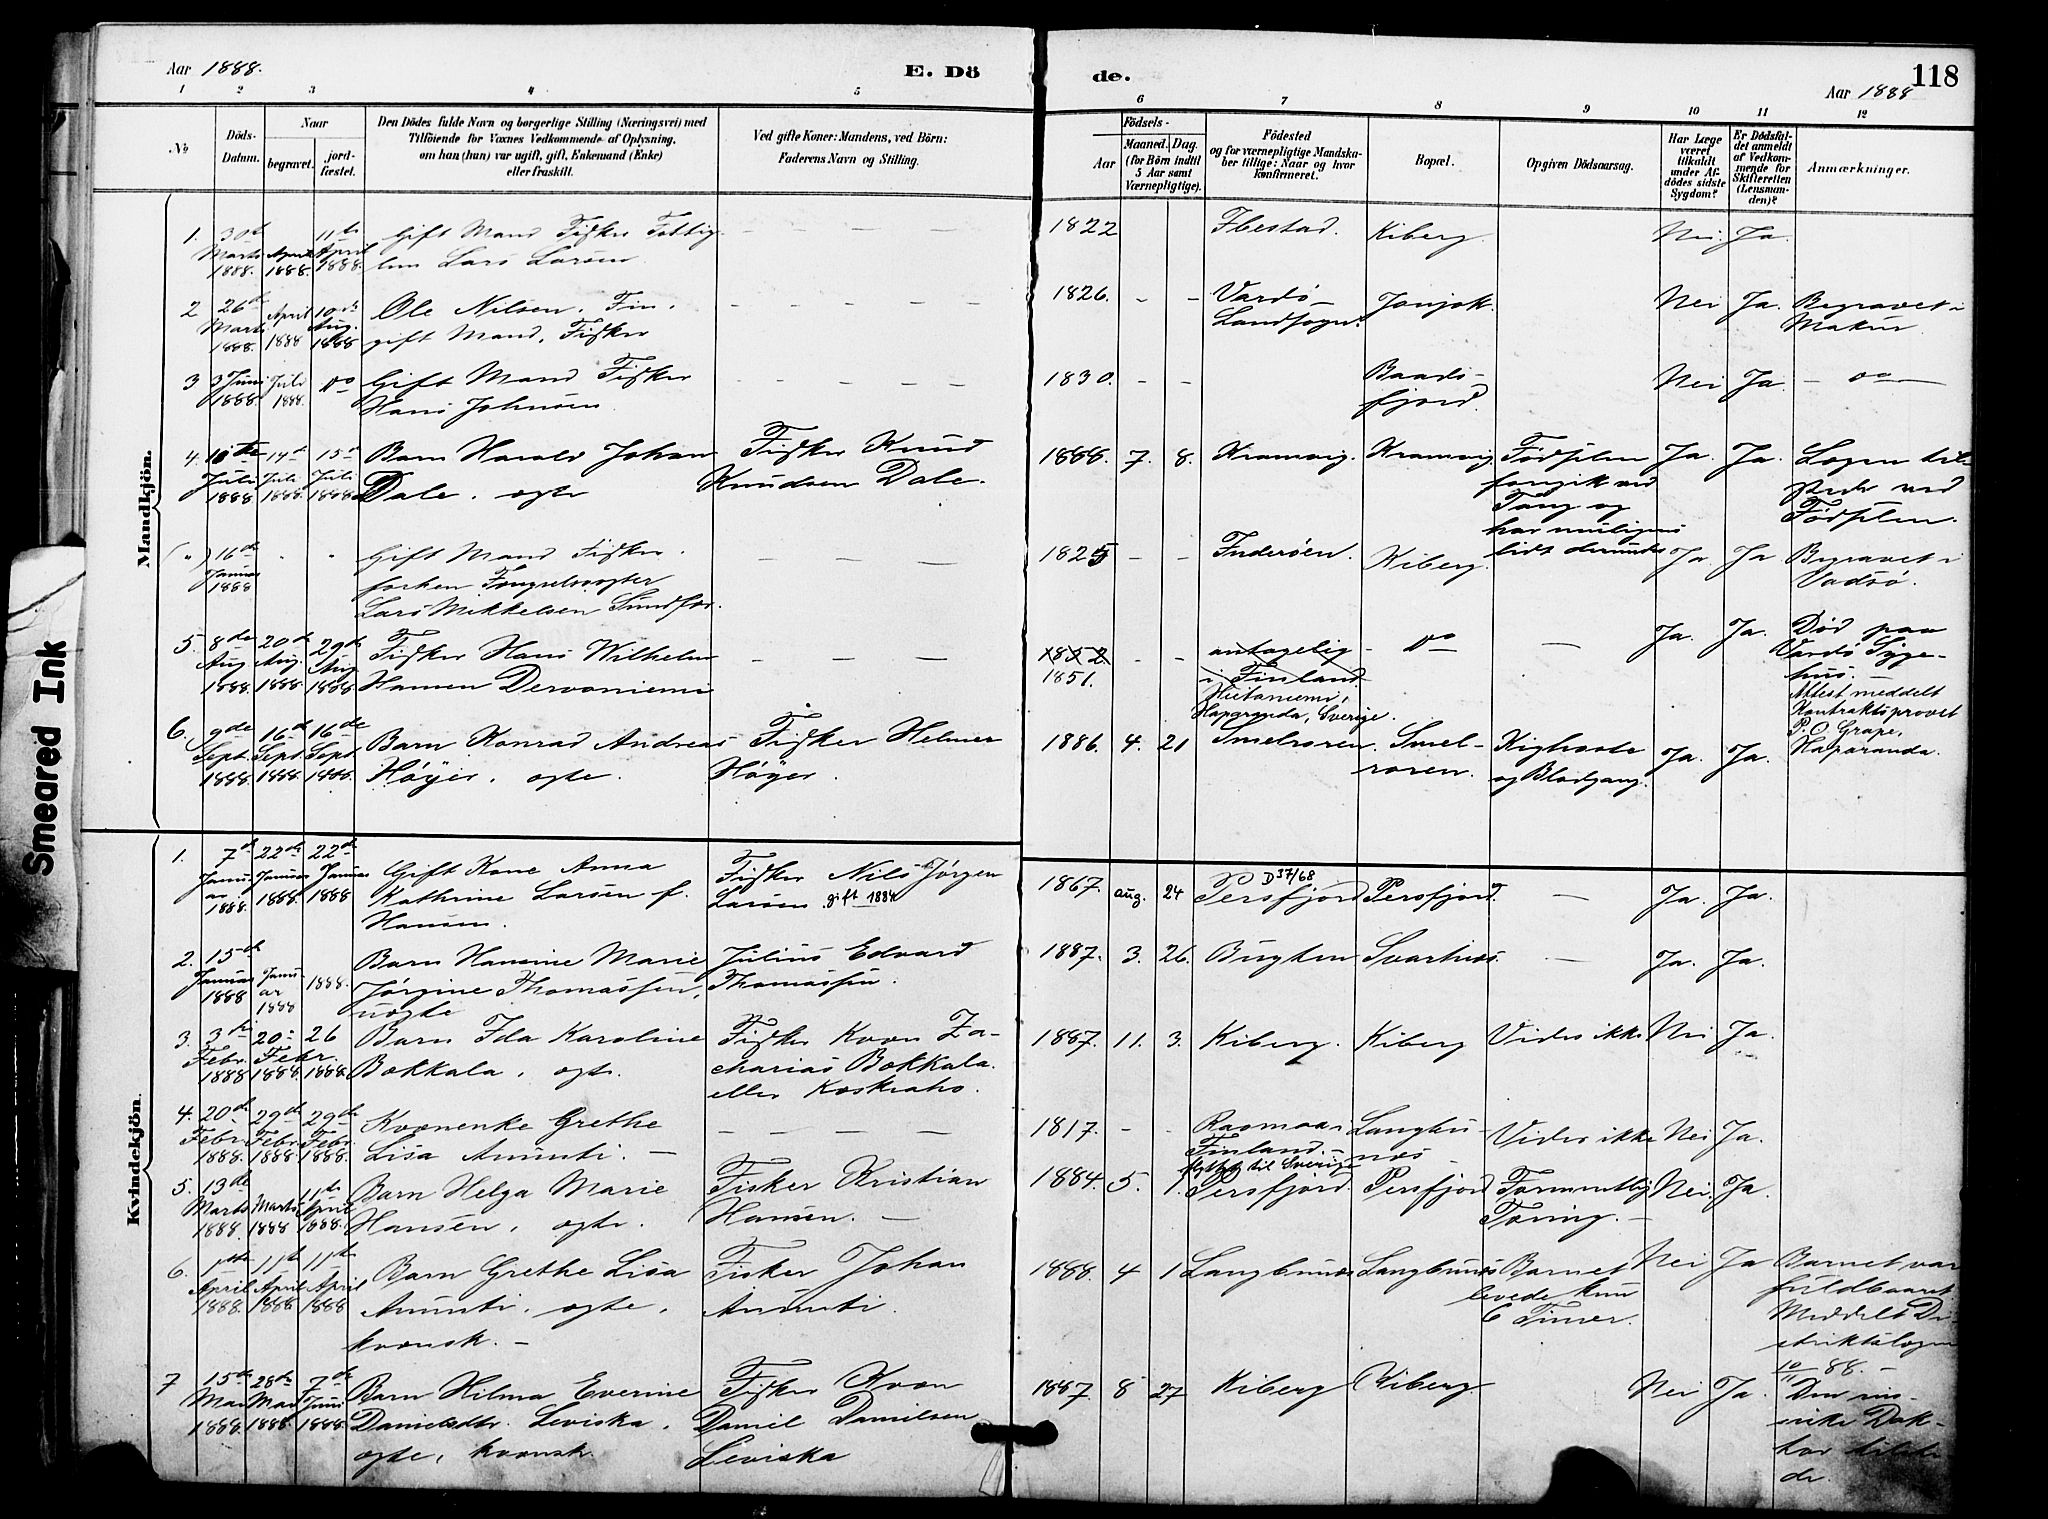 Aar 1888.
E. Dö
de.
118
Aar 1888
1 2 3 4 5 6 7 8 9 10 11 12
No
Döds-
Datum.
Naar
begravet.
jord-
fæstet.
Den Dödes fulde Navn og borgerlige Stilling (Næringsvei) med
Tilföiende for Voxnes Vedkommende af Oplysning,
om han (hun) var ugift, gift, Enkemand (Enke)
eller fraskilt.
Ved gifte Koner: Mandens, ved Börn:
Faderens Navn og Stilling.
Födsels-
Aar
Maaned. Dag.
(for Börn indtil
5 Aar samt
Værnepligtige).
Födested
og for værnepligtige Mandska-
ber tillige: Naar og hvor
konfirmeret.
Bopæl.
Opgiven Dödsaarsag.
Har Læge
været
tilkaldt
under Af-
dödes sidste
Sygdom?
Er Dödsfal-
det anmeldt
af Vedkom-
mende for
Skifteretten
(Lensman-
den)?
Anmærkninger.
Mandkjön.
1. 30te Marts 1888. April 1888. 11te April 1888.
Gift Mand Fisker Fattig-
lem Lars Larsen
1822 Ibestad. Kiberg. Nei. Ja.
2 26de Marts 1888. April 1888 10de Aug. 1888
Ole Nilsen. Fin.
gift Mand, Fisker
1826. - - Vardö-
Landsogn. Jonjok. Nei Ja. Begravet i
Makur.
3 3 Juni 1888. Juli 1888. do
Gift Mand Fisker
Hans Johnsen
1830. - - Baads-
fjord. Nei Ja. - do -
4. 10de Juli 1888 14de Juli 1888. 15de Juli 1888
Barn Harald Johan
Dale. ægte
Fisker Knud
Knudsen Dale.
1888. 7. 8. Kramvig. Kramvig. Fødselen
foregik ved
Tang og
har muligens
lidt derunder
Ja. Ja. Lægen til-
stede ved
Fødselen.
(") 16de Januar 1888 " "
Gift Mand Fisker.
forhen Fængselsvogter
Lars Mikkelsen Sundfær.
1825 - - Inderøen. Kiberg. Ja. Ja Begravet i
Vadsø.
5. 8de Aug 1888. 20de Aug. 1888. 29de Aug 1888
Fisker Hans Wilhelm
Hansen Dervoniemi
1852
1851. - - antagelig
i Finland.
Hietaniemi,
Haparanda, Sverige.
do - Ja. Ja. Død paa
Vardö Syge-
hus. -
Attest meddelt
Kontraktsprovst
P. O. Grape,
Haparanda.
6. 9de Sept. 1888. 16de Sept. 1888. 16de Sept. 1888.
Barn Konrad Andreas
Höyer. ægte.
Fisker Helmer
Höyer.
1886. 4. 21 Smelroren. Smel-
roren. Kighoste
og Blodgang. Ja. Ja.
Kvindekjön.
1. 7de Janu-
ar 1888. 22de Januar 1888. 22de Januar 1888
Gift Kone Anna
Kathrine Larsen f.
Hansen.
Fisker Nils Jörgen
Larsen. gift 1884
1867. aug. 24 D 37/68
Persfjord Persfjord. - Ja. Ja.
2. 15de Januar 1888 Janu-
ar 1888 1888.
Barn Hansine Marie
Jörgine Thomassen,
uægte
Julius Edvard
Thomassen.
1887. 3. 26. Bugten Svartnes. - Ja. Ja.
3. 3die Febr. 1888 20- Febr. 1888. 26 1888.
Barn Ida Karoline
Bokkala, ægte.
Fisker Kvæn Za-
charias Bokkala.
eller Koskiaho.
1887. 11. 3. Kiberg. Kiberg Vides ikke Nei Ja.
4. 20de Febr. 1888. 29de Febr. 1888. 29de Febr. 1888.
Kvænenke Grethe
Lisa Anunti. -
1817. - - Finland. -
flyttet til Sverige
Langbu-
næs - Vides ikke Nei Ja.
5. 13de Marts 1888. Marts 1888 11te April 1888.
Barn Helga Marie
Hansen, ægte.
Fisker Kristian
Hansen. -
1884. 5. 1. Persfjord. Persfjord Formentlig
Tæring. - Nei. Ja.
6. 1ste April 1888. 11te April 1888 11te April 1888
Barn Grethe Lisa
Anunti. ægte.
kvænsk. -
Fisker Johan
Anunti.
1888. 4 1 Langbunæs Langbunæs Barnet
levede kun
6 Timer. Nei Ja Barnet var
fuldbaaret
Meddelt Di-
striktslægen
10/11 88. -
7 15de Mai 1888. 28de Mai 1888. 7de Juni 1888.
Barn Hilma Everine
Danielsdtr. Leviska.
ægte, kvænsk.
Fisker Kvæn
Daniel Danilsen
Leviska
1887. 8 27 Kiberg Kiberg. Nei Ja. Den
Dok-
tor
Smeared Ink